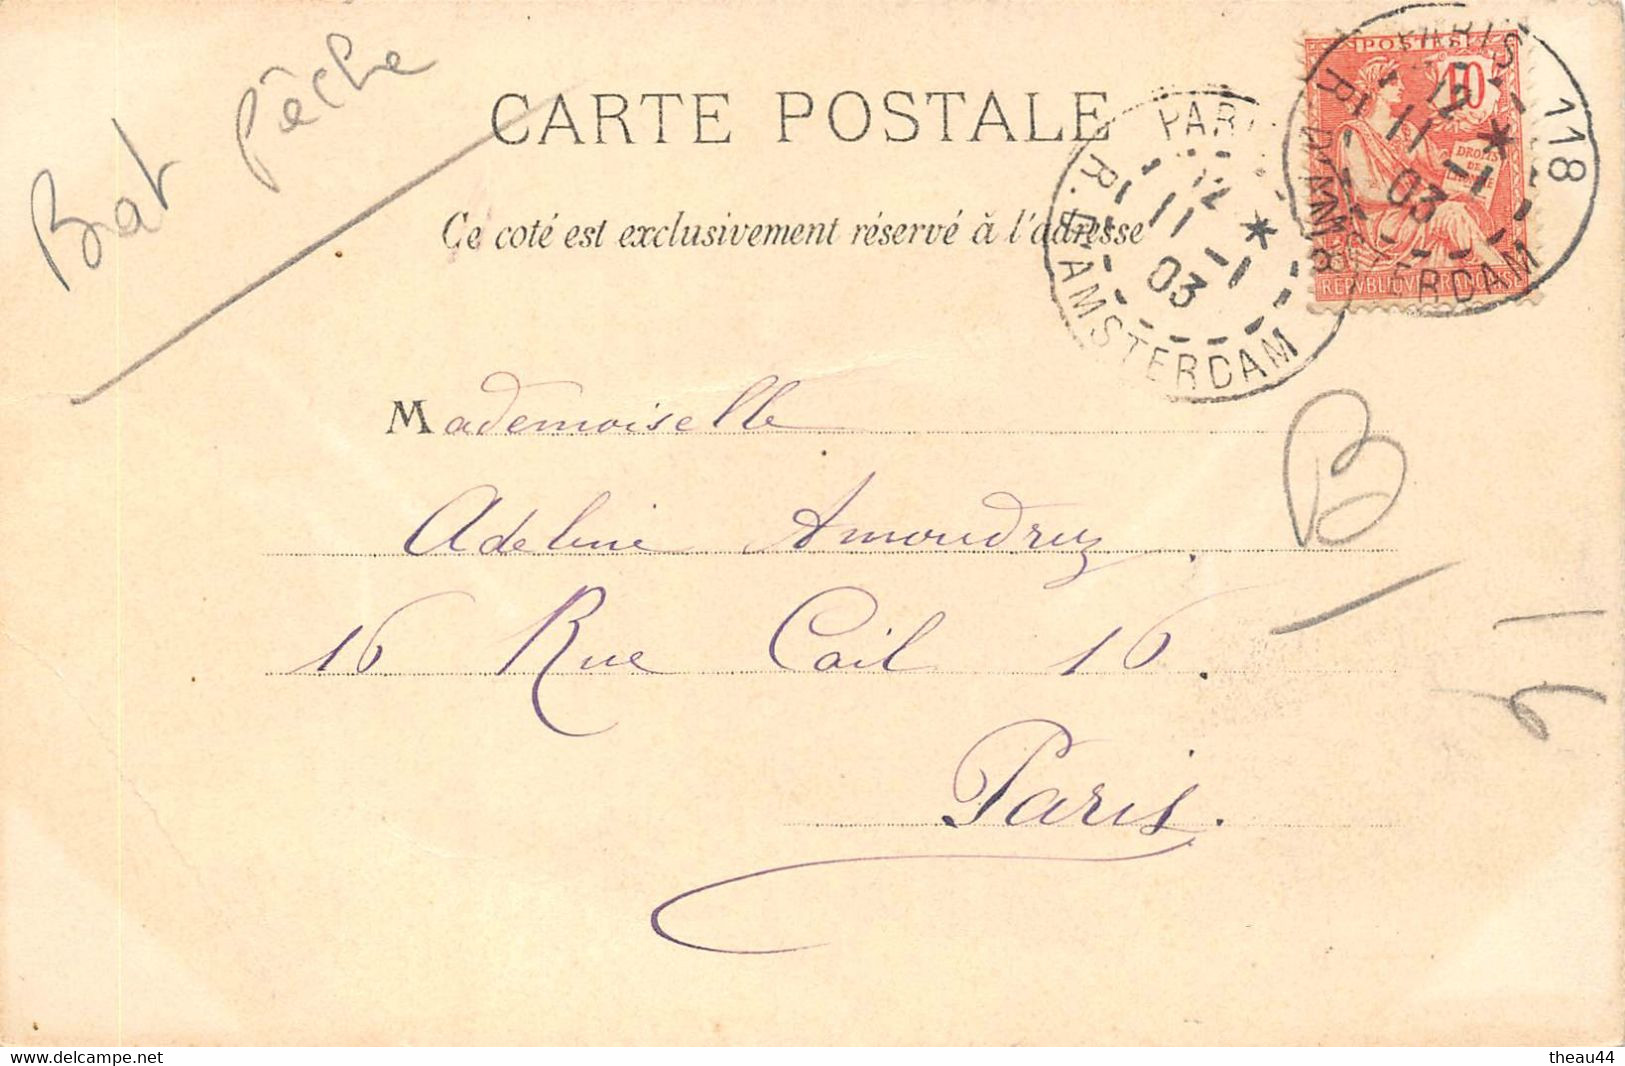 Bat pêche
CARTE POSTALE
Ce coté est exclusivement réservé à l'adresse
POSTES
10
DROITS
DE
REPVBLIQVE FRANÇAISE
PARIS 118
12
11 - 1
03
R. D'AMSTERDAM
PARIS 118
12
11 - 1
03
R. D'AMSTERDAM
Mademoiselle
Adeline Amoudruz.
16 Rue Cail 16.
Paris.
B
delcampe.net
theau44